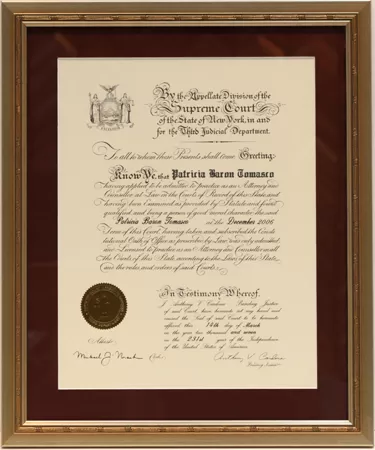 By the Appellate Division of the
Supreme Court
of the State of New York, in and
for the Third Judicial Department.
To all to whom these Presents shall come Greeting
Know Ye, that Patricia Baron Tomasco
having applied to be admitted to practice as an Attorney and
Counsellor at Law in the Courts of Record of this State, and
having been Examined as provided by Statute and found
qualified and being a person of good moral character
Patricia Baron Tomasco at the December 2006
Term of this Court, having taken and subscribed the Consti-
tutional Oath of Office as provided by Law was duly admitted
and Licensed to practice as an Attorney and Counsellor in all
the Courts of this State, according to the Laws of this State
and the rules and orders of said Courts.
In Testimony Whereof,
I Anthony V. Cardona Presiding Justice
of said Court, have hereunto set my hand and
caused the Seal of said Court to be hereunto
affixed this 14th day of March
in the year two thousand and seven
in the 231st year of the Independence
of the United States of America.
Attest:
Clerk
Anthony V. Cardona
Presiding Justice